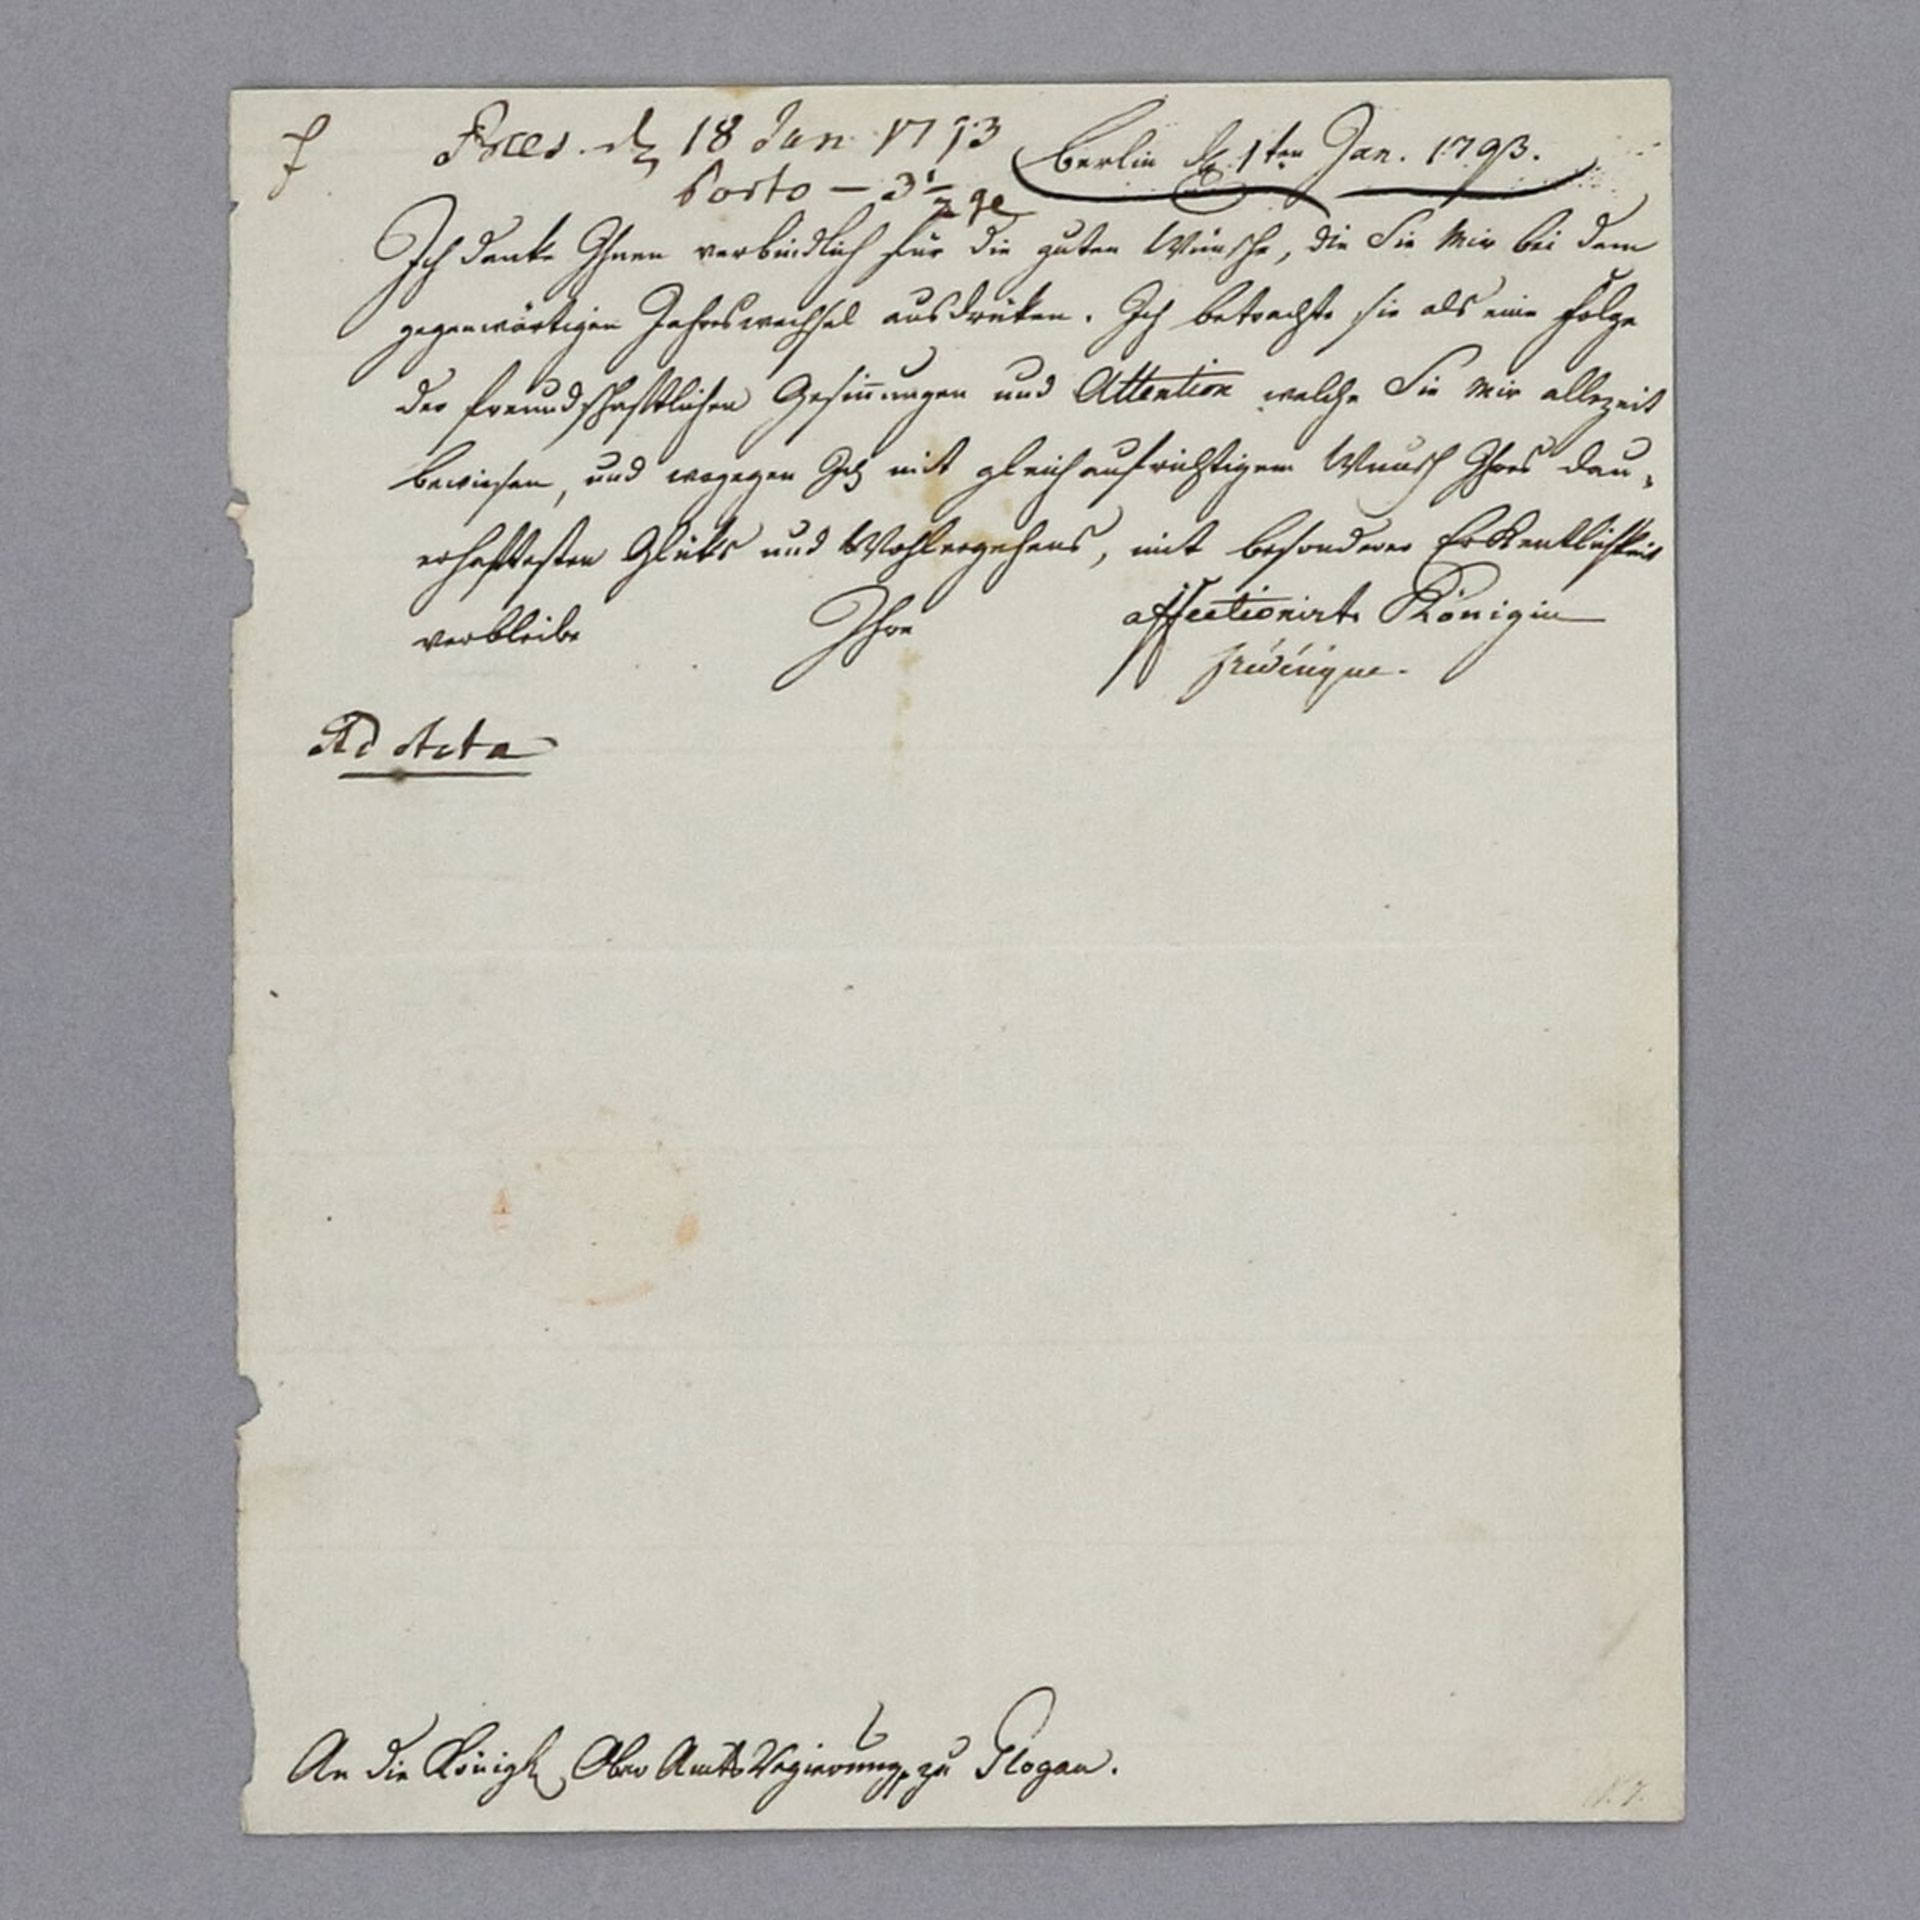 Præs. d. 18 Jan 1793
Berlin d. 1ten Jan. 1793.
Porto — 3 1/2 ge
Ich danke Ihnen verbindlich für die guten Wünsche, die Sie Mir bei dem
gegenwärtigen Jahreswechsel ausdrüken. Ich betrachte sie als eine Folge
der freundschaftlichen Gesin̄ungen und Attention welche Sie Mir allezeit
bewiesen, und wogegen Ich mit gleich aufrichtigem Wunsch Ihres dau-
erhaftesten Glüks und Wohlergehens, mit besonderer Erkentlichkeit
verbleibe Ihre affectionirte Königin
fridérique.
Ad Acta
An die Königl. Ober Amts Regierung, zu Glogau.